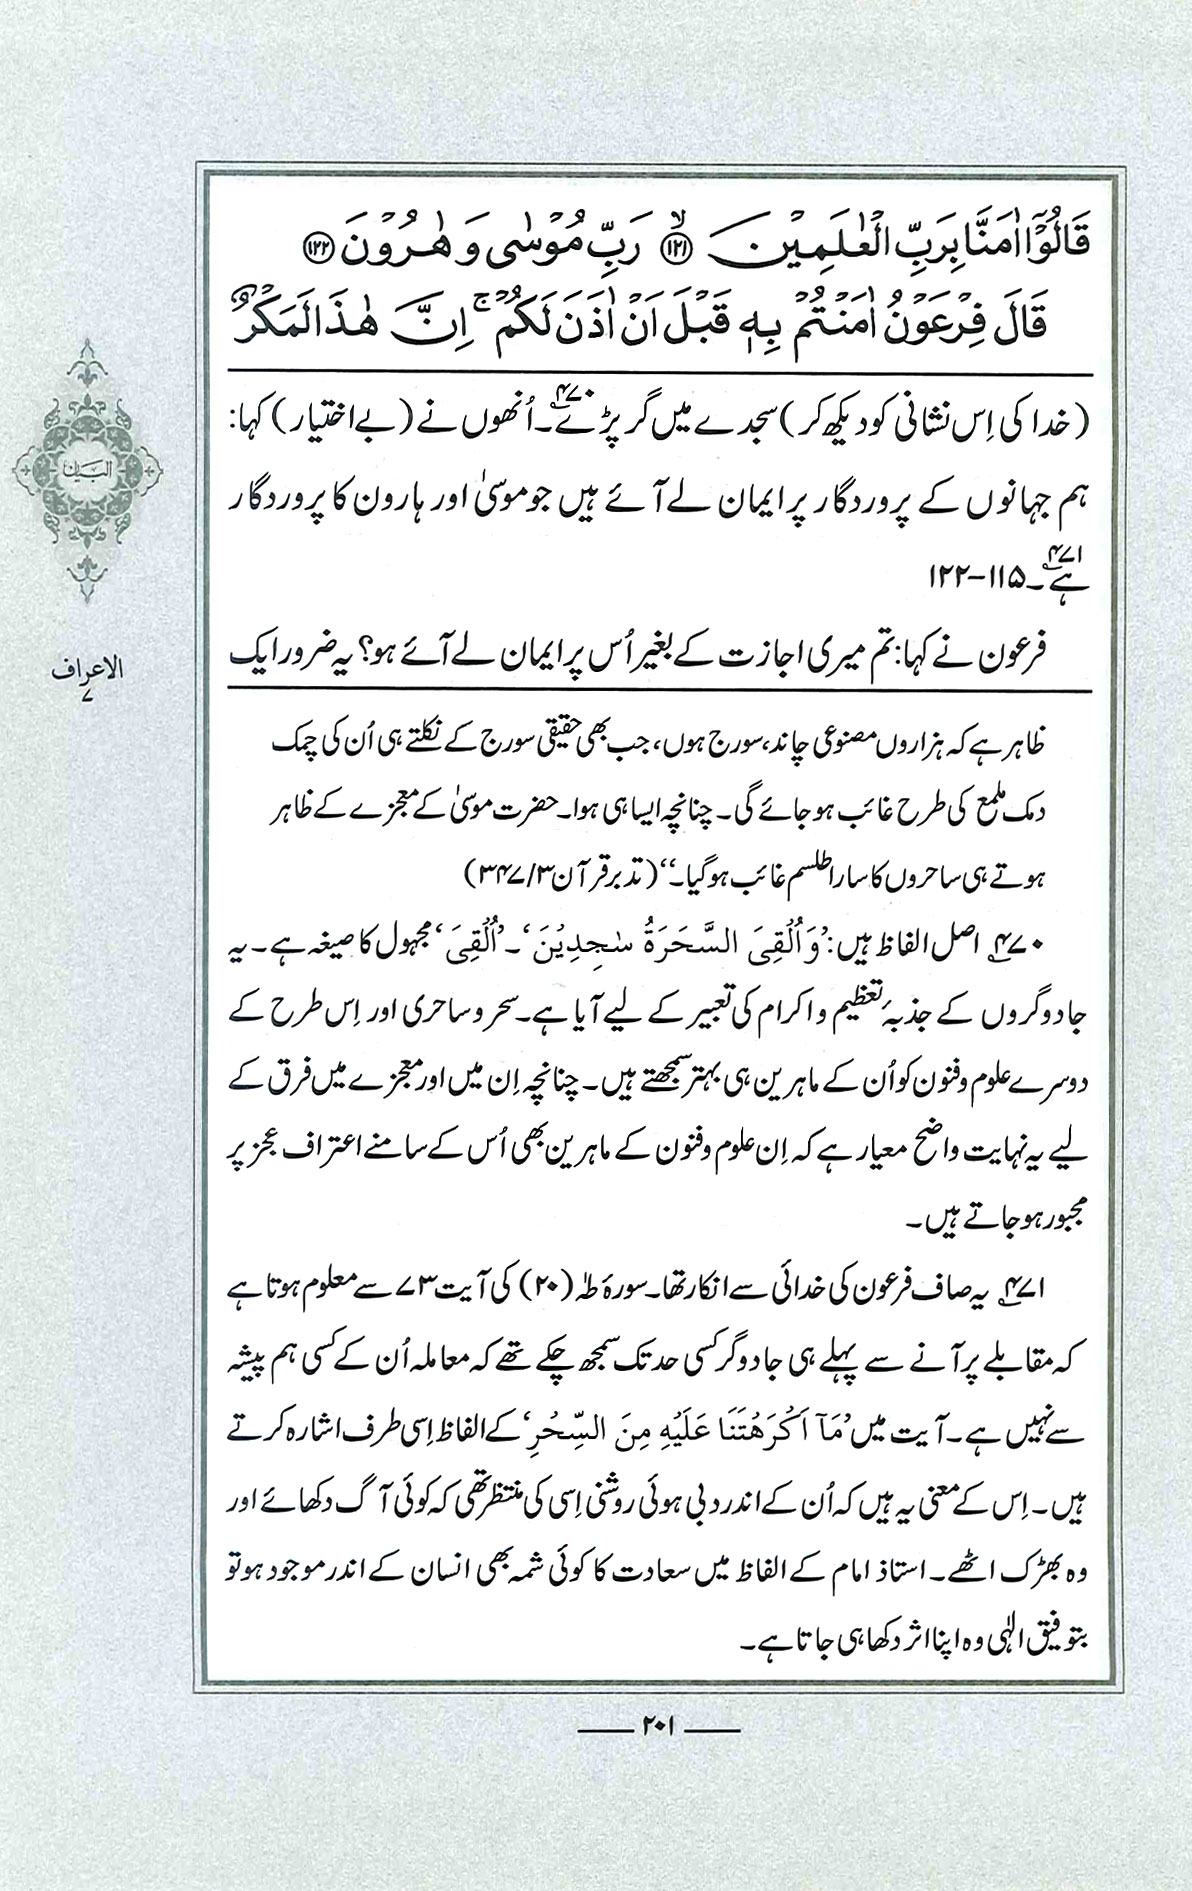 قَالُوْٓا اٰمَنَّا بِرَبِّ الْعٰلَمِيْنَ ﴿۱۲۱﴾ۙ رَبِّ مُوْسٰى وَهٰرُوْنَ ﴿۱۲۲﴾
قَالَ فِرْعَوْنُ اٰمَنْتُمْ بِهٖ قَبْلَ اَنْ اٰذَنَ لَكُمْۚ اِنَّ هٰذَا لَمَكْرٌ
(خدا کی اِس نشانی کو دیکھ کر) سجدے میں گر پڑے۴۷۰۔ اُنھوں نے (بے اختیار) کہا:
ہم جہانوں کے پروردگار پر ایمان لے آئے ہیں جو موسیٰ اور ہارون کا پروردگار
ہے۴۷۱۔ ۱۱۵-۱۲۲
فرعون نے کہا: تم میری اجازت کے بغیر اُس پر ایمان لے آئے ہو؟ یہ ضرور ایک
ظاہر ہے کہ ہزاروں مصنوعی چاند، سورج ہوں، جب بھی حقیقی سورج کے نکلتے ہی اُن کی چمک
دمک ملمع کی طرح غائب ہو جائے گی۔ چنانچہ ایسا ہی ہوا۔ حضرت موسیٰ کے معجزے کے ظاہر
ہوتے ہی ساحروں کا سارا طلسم غائب ہو گیا۔‘‘ (تدبر قرآن ۳/ ۳۴۷)
۴۷۰؂ اصل الفاظ ہیں: ’وَاُلْقِيَ السَّحَرَةُ سٰجِدِيْنَ‘۔ ’اُلْقِيَ‘ مجہول کا صیغہ ہے۔ یہ
جادوگروں کے جذبۂ تعظیم و اکرام کی تعبیر کے لیے آیا ہے۔ سحر و ساحری اور اِس طرح کے
دوسرے علوم و فنون کو اُن کے ماہرین ہی بہتر سمجھتے ہیں۔ چنانچہ اِن میں اور معجزے میں فرق کے
لیے یہ نہایت واضح معیار ہے کہ اِن علوم و فنون کے ماہرین بھی اُس کے سامنے اعتراف عجز پر
مجبور ہو جاتے ہیں۔
۴۷۱؂ یہ صاف فرعون کی خدائی سے انکار تھا۔ سورۂ طٰہٰ (۲۰) کی آیت ۷۳ سے معلوم ہوتا ہے
کہ مقابلے پر آنے سے پہلے ہی جادوگر کسی حد تک سمجھ چکے تھے کہ معاملہ اُن کے کسی ہم پیشہ
سے نہیں ہے۔ آیت میں ’مَآ اَكْرَهْتَنَا عَلَيْهِ مِنَ السِّحْرِ‘ کے الفاظ اِسی طرف اشارہ کرتے
ہیں۔ اِس کے معنی یہ ہیں کہ اُن کے اندر دبی ہوئی روشنی اِسی کی منتظر تھی کہ کوئی آگ دکھائے اور
وہ بھڑک اٹھے۔ استاذ امام کے الفاظ میں سعادت کا کوئی شمہ بھی انسان کے اندر موجود ہو تو
بتوفیق الٰہی وہ اپنا اثر دکھا ہی جاتا ہے۔
البیان
الاعراف
۷
۲۰۱